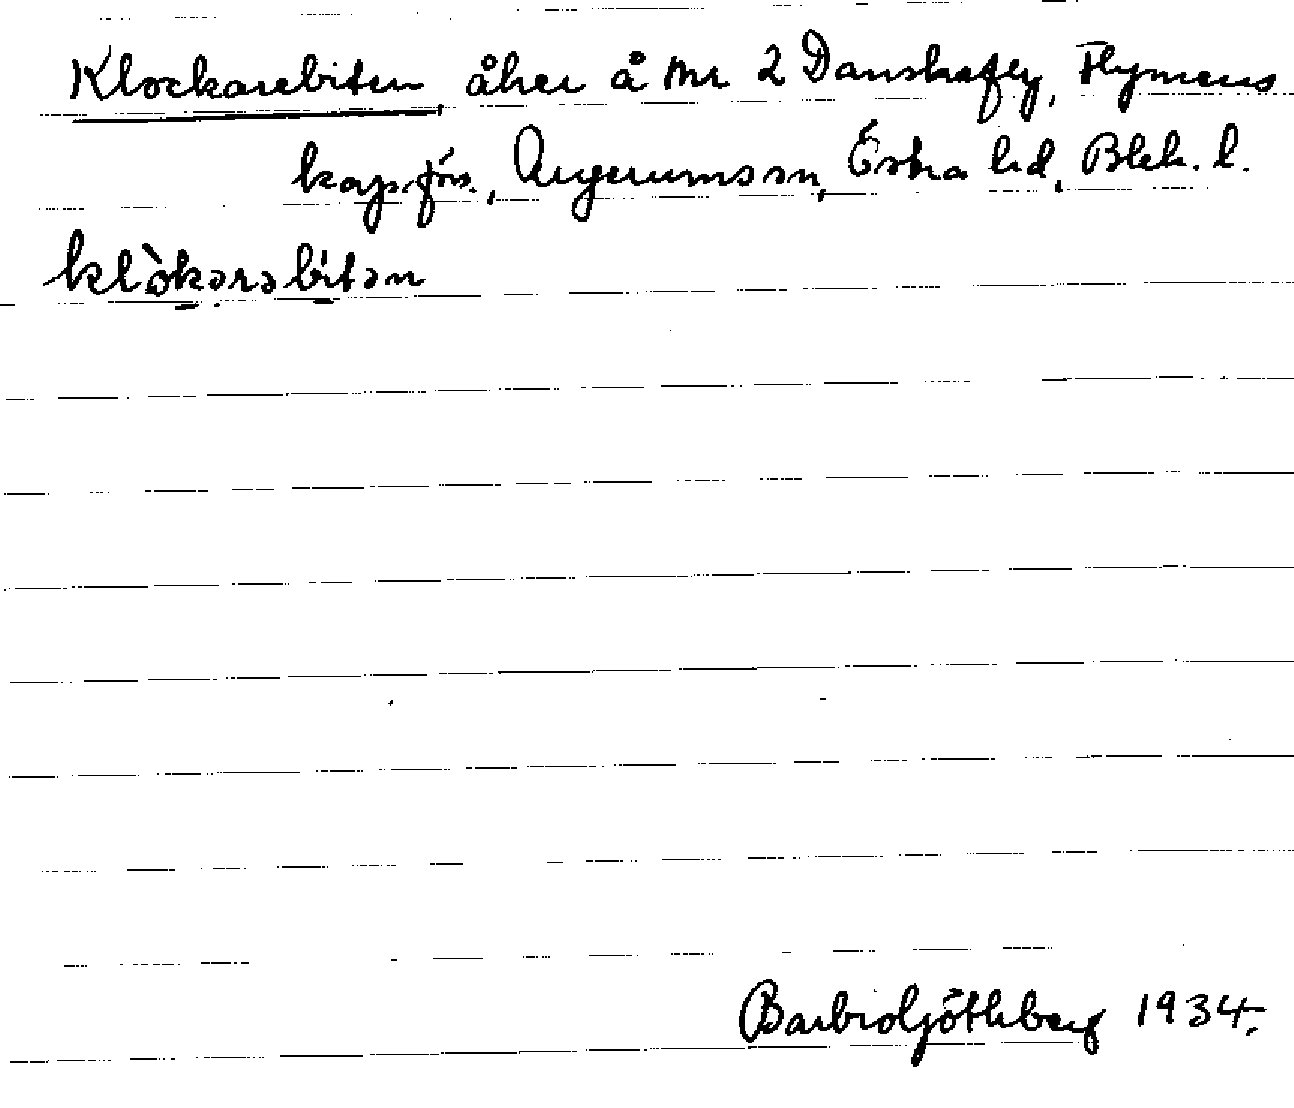 Klockarebiten, åker å Nr 2 Danskafly, Flymens
kap.förs., Augerumssn, Östra hd, Blek. l.
klòkarəbitən
Barbro Göthberg 1934.